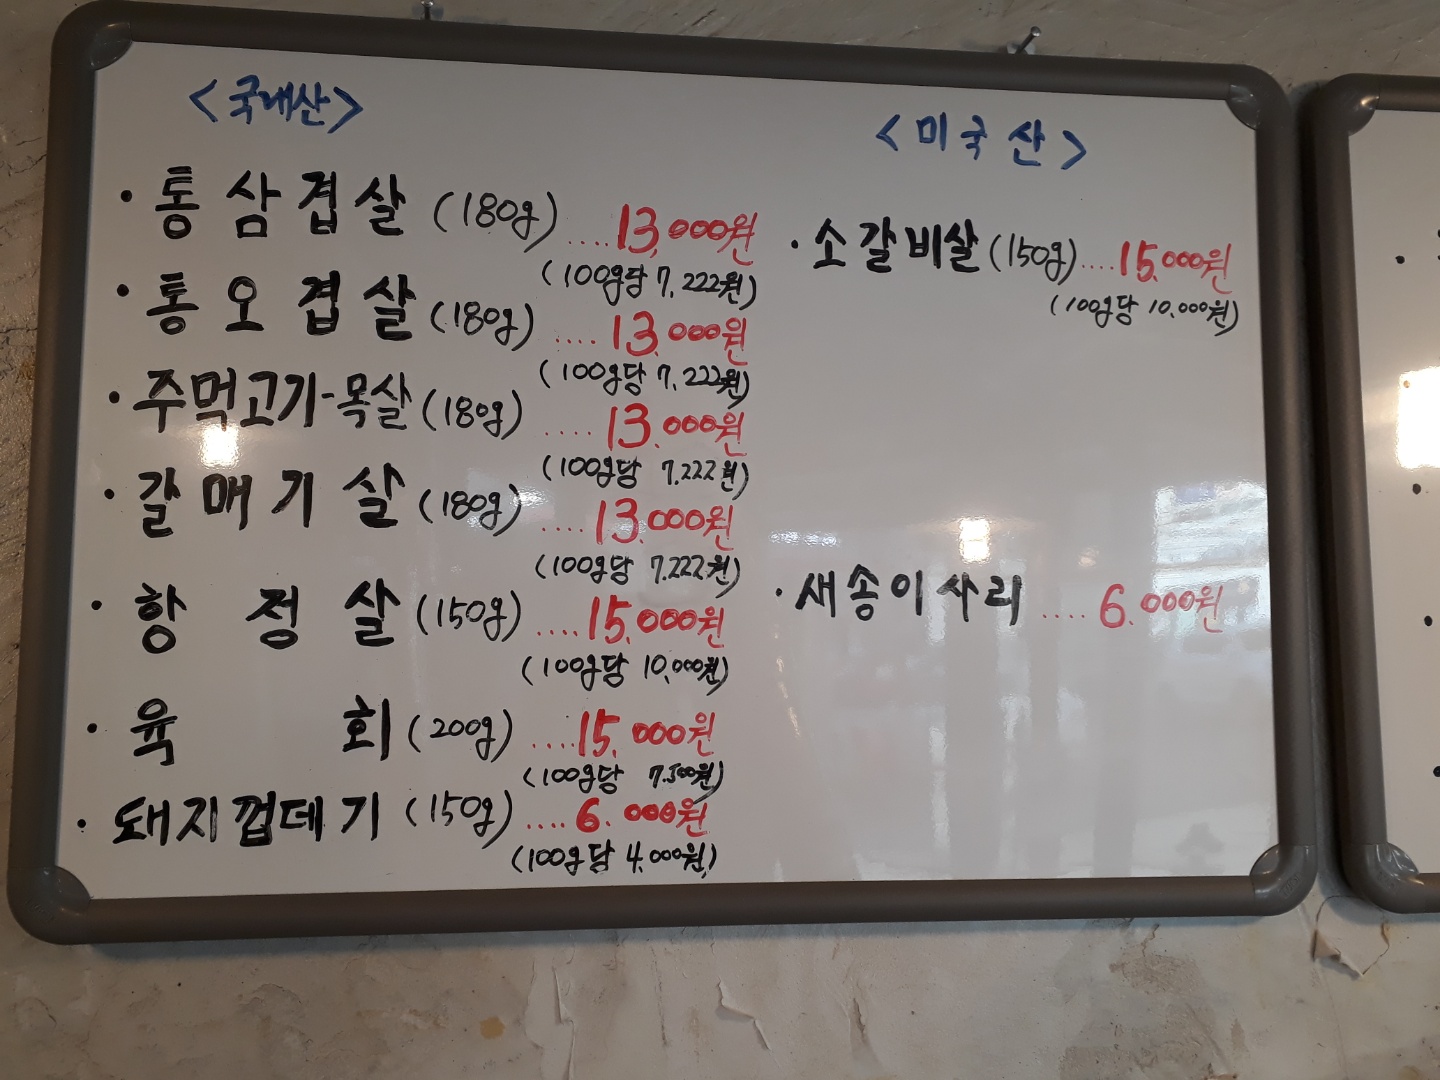 <국내산>
· 통삼겹살 (180g) .... 13,000원
(100g당 7,222원)
· 통오겹살 (180g) .... 13,000원
(100g당 7,222원)
· 주먹고기-목살 (180g) .... 13,000원
(100g당 7,222원)
· 갈매기살 (180g) .... 13,000원
(100g당 7,222원)
· 항정살 (150g) .... 15,000원
(100g당 10,000원)
· 육회 (200g) .... 15,000원
(100g당 7,500원)
· 돼지껍데기 (150g) .... 6,000원
(100g당 4,000원)
<미국산>
· 소갈비살 (150g) .... 15,000원
(100g당 10,000원)
· 새송이사리 .... 6,000원